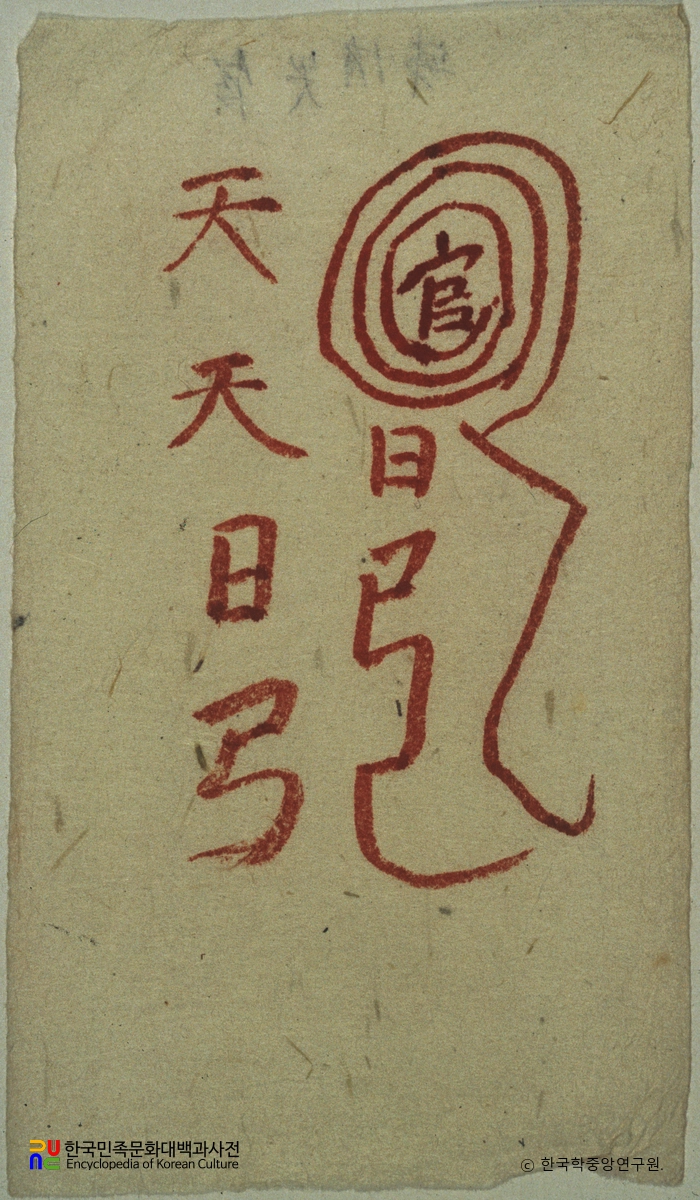 官
日
弓
天
天
日
弓
한국민족문화대백과사전
Encyclopedia of Korean Culture
© 한국학중앙연구원.